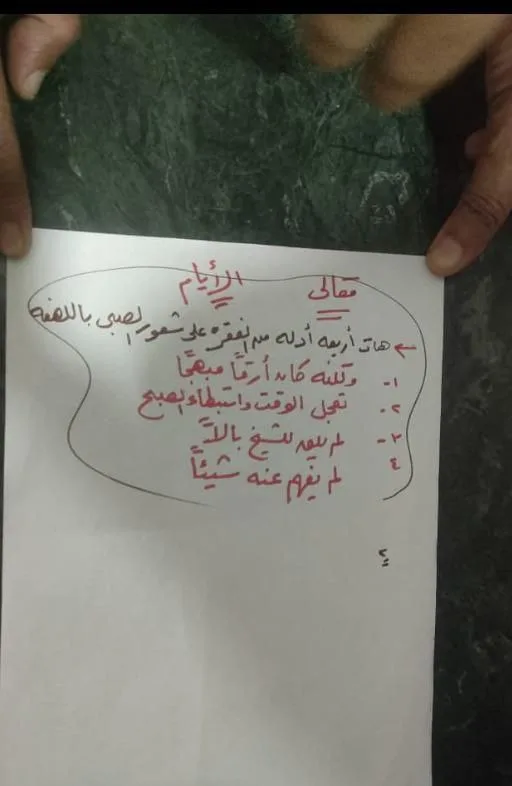 مقالى الأيام
← هات أربعه أدله من الفقره على شعور الصبى باللهفه
١- ولكنه كان أرقاً مبهجاً
٢- تعجل الوقت واستبطاء الصبح
٣- لم يلق للشيخ بالاً
٤ لم يفهم عنه شيئاً
٢